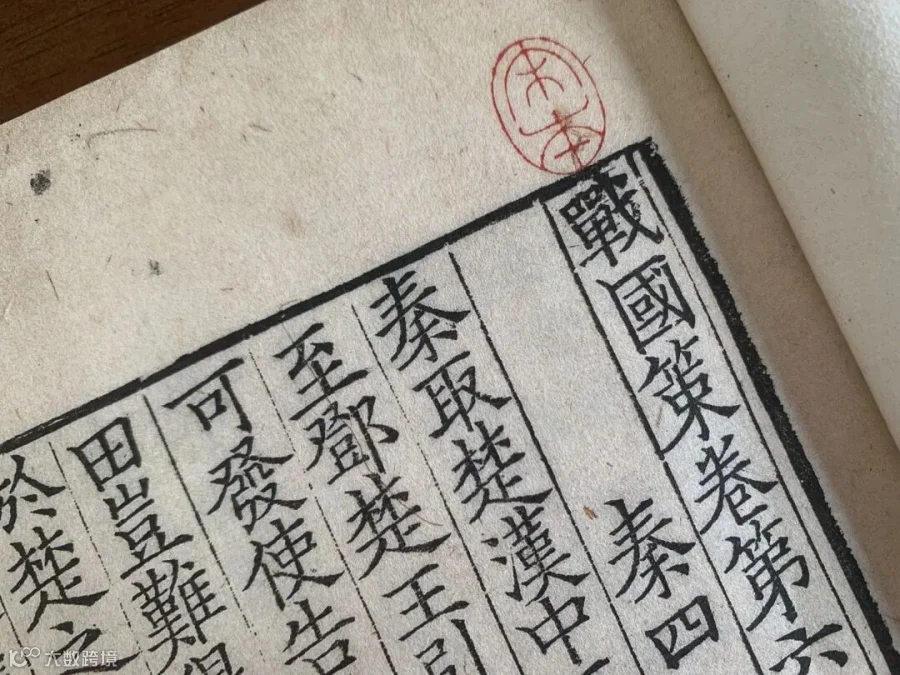 戰國策卷第六
秦四
秦取楚漢中
至鄧楚王引
可發使告
田豈難得
於楚之
木本
大数跨境